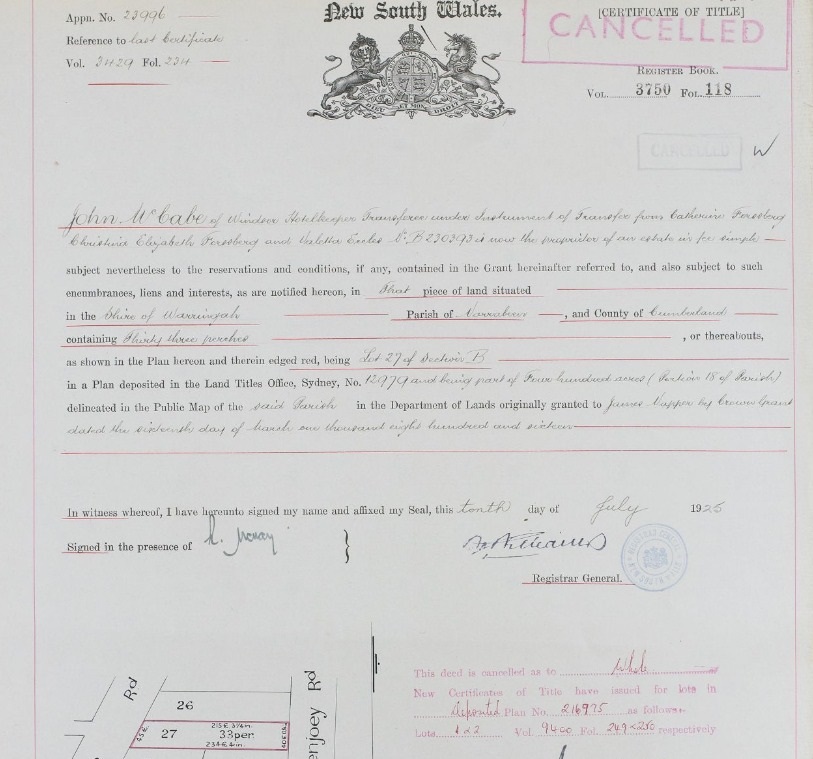 New South Wales.
Appn. No. 23996
Reference to last Certificate
Vol. 3429 Fol. 234
[CERTIFICATE OF TITLE]
CANCELLED
REGISTER BOOK.
VOL. 3750 FOL. 118
CANCELLED
W
John McCabe of Windsor Hotelkeeper Transferee under Instrument of Transfer from Catherine Forssberg
Christina Elizabeth Forssberg and Valetta Eccles No. B230393 is now the proprietor of an estate in fee simple
subject nevertheless to the reservations and conditions, if any, contained in the Grant hereinafter referred to, and also subject to such
encumbrances, liens and interests, as are notified hereon, in That piece of land situated
in the Shire of Warringah Parish of Narrabeen, and County of Cumberland
containing Thirty three perches, or thereabouts,
as shown in the Plan hereon and therein edged red, being Lot 27 of Section B
in a Plan deposited in the Land Titles Office, Sydney, No. 12979 and being part of Four hundred acres (Portion 18 of Parish)
delineated in the Public Map of the said Parish in the Department of Lands originally granted to James Napper by Crown Grant
dated the sixteenth day of March one thousand eight hundred and sixteen
In witness whereof, I have hereunto signed my name and affixed my Seal, this tenth day of July 1925
Signed in the presence of
Registrar General.
This deed is cancelled as to Whole
New Certificates of Title have issued for lots in
deposited Plan No. 216975 as follows:-
Lots 1 & 2 Vol. 9400 Fol. 249 & 250 respectively
Rd
26
27
33per.
enjoey Rd